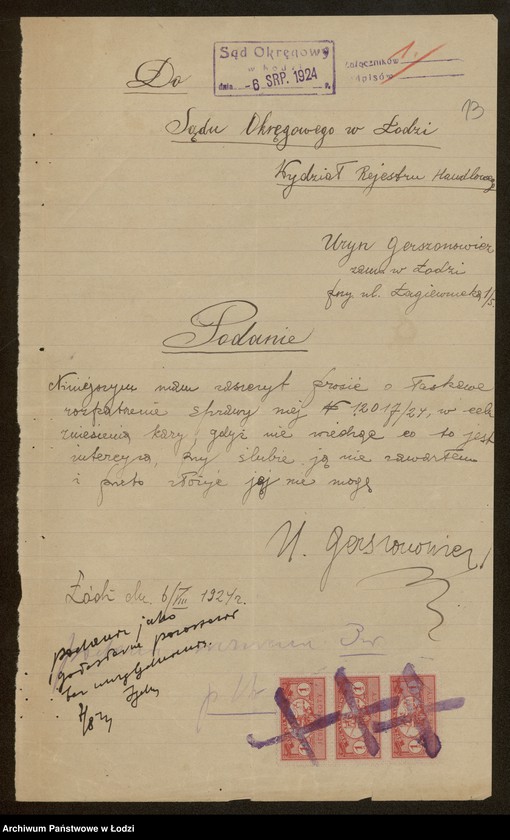 Sąd Okręgowy
w Łodzi
dnia - 6 SRP. 1924 r.
załączników 1.
odpisów
13
Do
Sądu Okręgowego w Łodzi
Wydział Rejestru Handlowego
Uryn Gerszonowicz
zam. w Łodzi
przy ul. Łagiewnicka 1/5
Podanie
Niniejszym mam zaszczyt prosić o łaskawe
rozpatrzenie sprawy mej № 12017/24, w celu
zniesienia kary, gdyż nie wiedząc co to jest
intercyza, przy ślubie ją nie zawarłem
i przeto złożyć jej nie mogę
U. Gerszonowicz
Łódź dn. 6/VIII 1924 r.
podanie jako
pozostawić
bez uwzględnienia.
1
1
1
1
1
1
Archiwum Państwowe w Łodzi